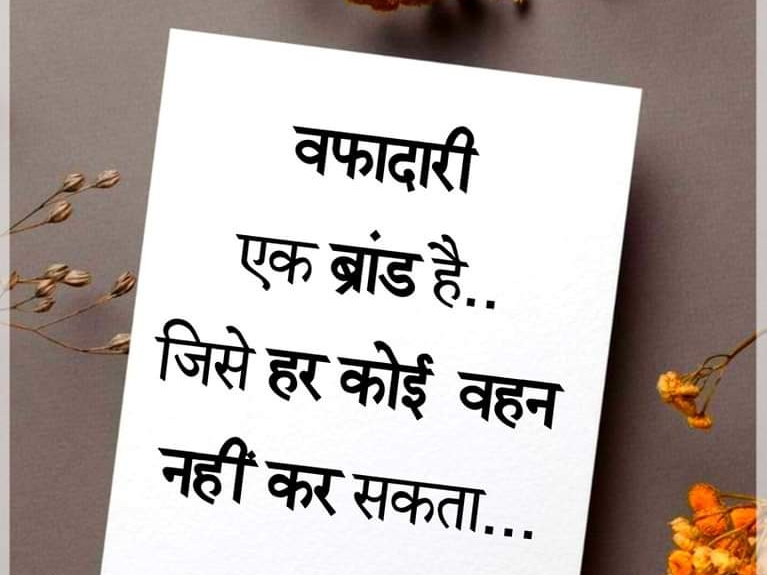 वफादारी
एक ब्रांड है..
जिसे हर कोई वहन
नहीं कर सकता...